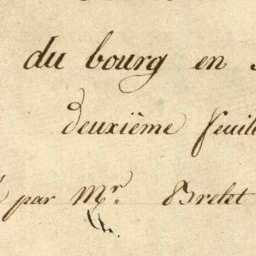 du bourg en
deuxième feuil
par Mr. Bretet